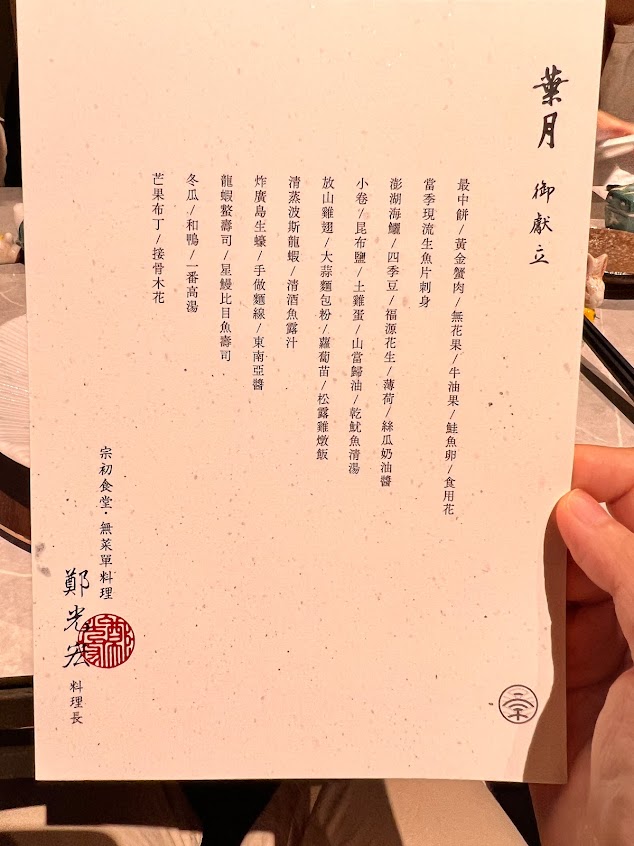 葉月 御獻立
最中餅/黃金蟹肉/無花果/牛油果/鮭魚卵/食用花
當季現流生魚片刺身
澎湖海鱺/四季豆/福源花生/薄荷/絲瓜奶油醬
小卷/昆布鹽/土雞蛋/山當歸油/乾魷魚清湯
放山雞翅/大蒜麵包粉/蘿蔔苗/松露雞燉飯
清蒸波斯龍蝦/清酒魚露汁
炸廣島生蠔/手做麵線/東南亞醬
龍蝦螯壽司/星鰻比目魚壽司
冬瓜/和鴨/一番高湯
芒果布丁/接骨木花
宗初食堂·無菜單料理
鄭光宏 料理長